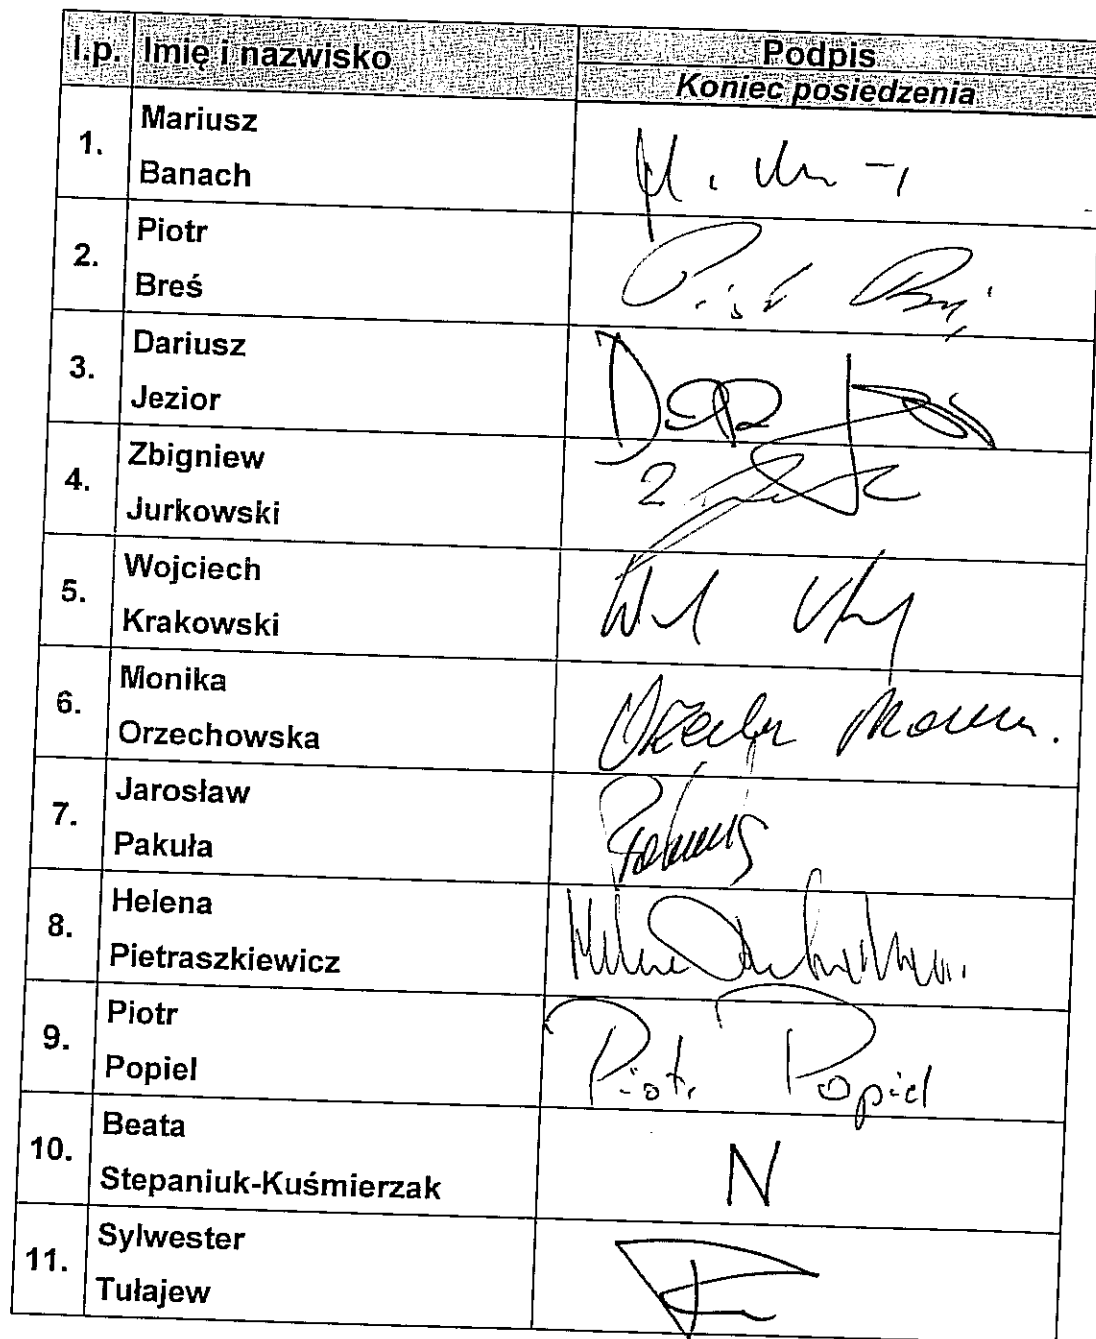 l.p. Imię i nazwisko Podpis
Koniec posiedzenia
1. Mariusz
Banach
2. Piotr
Breś
3. Dariusz
Jezior
4. Zbigniew
Jurkowski
5. Wojciech
Krakowski
6. Monika
Orzechowska
7. Jarosław
Pakuła
8. Helena
Pietraszkiewicz
9. Piotr
Popiel
Piotr Popiel
10. Beata
Stepaniuk-Kuśmierzak
N
11. Sylwester
Tułajew